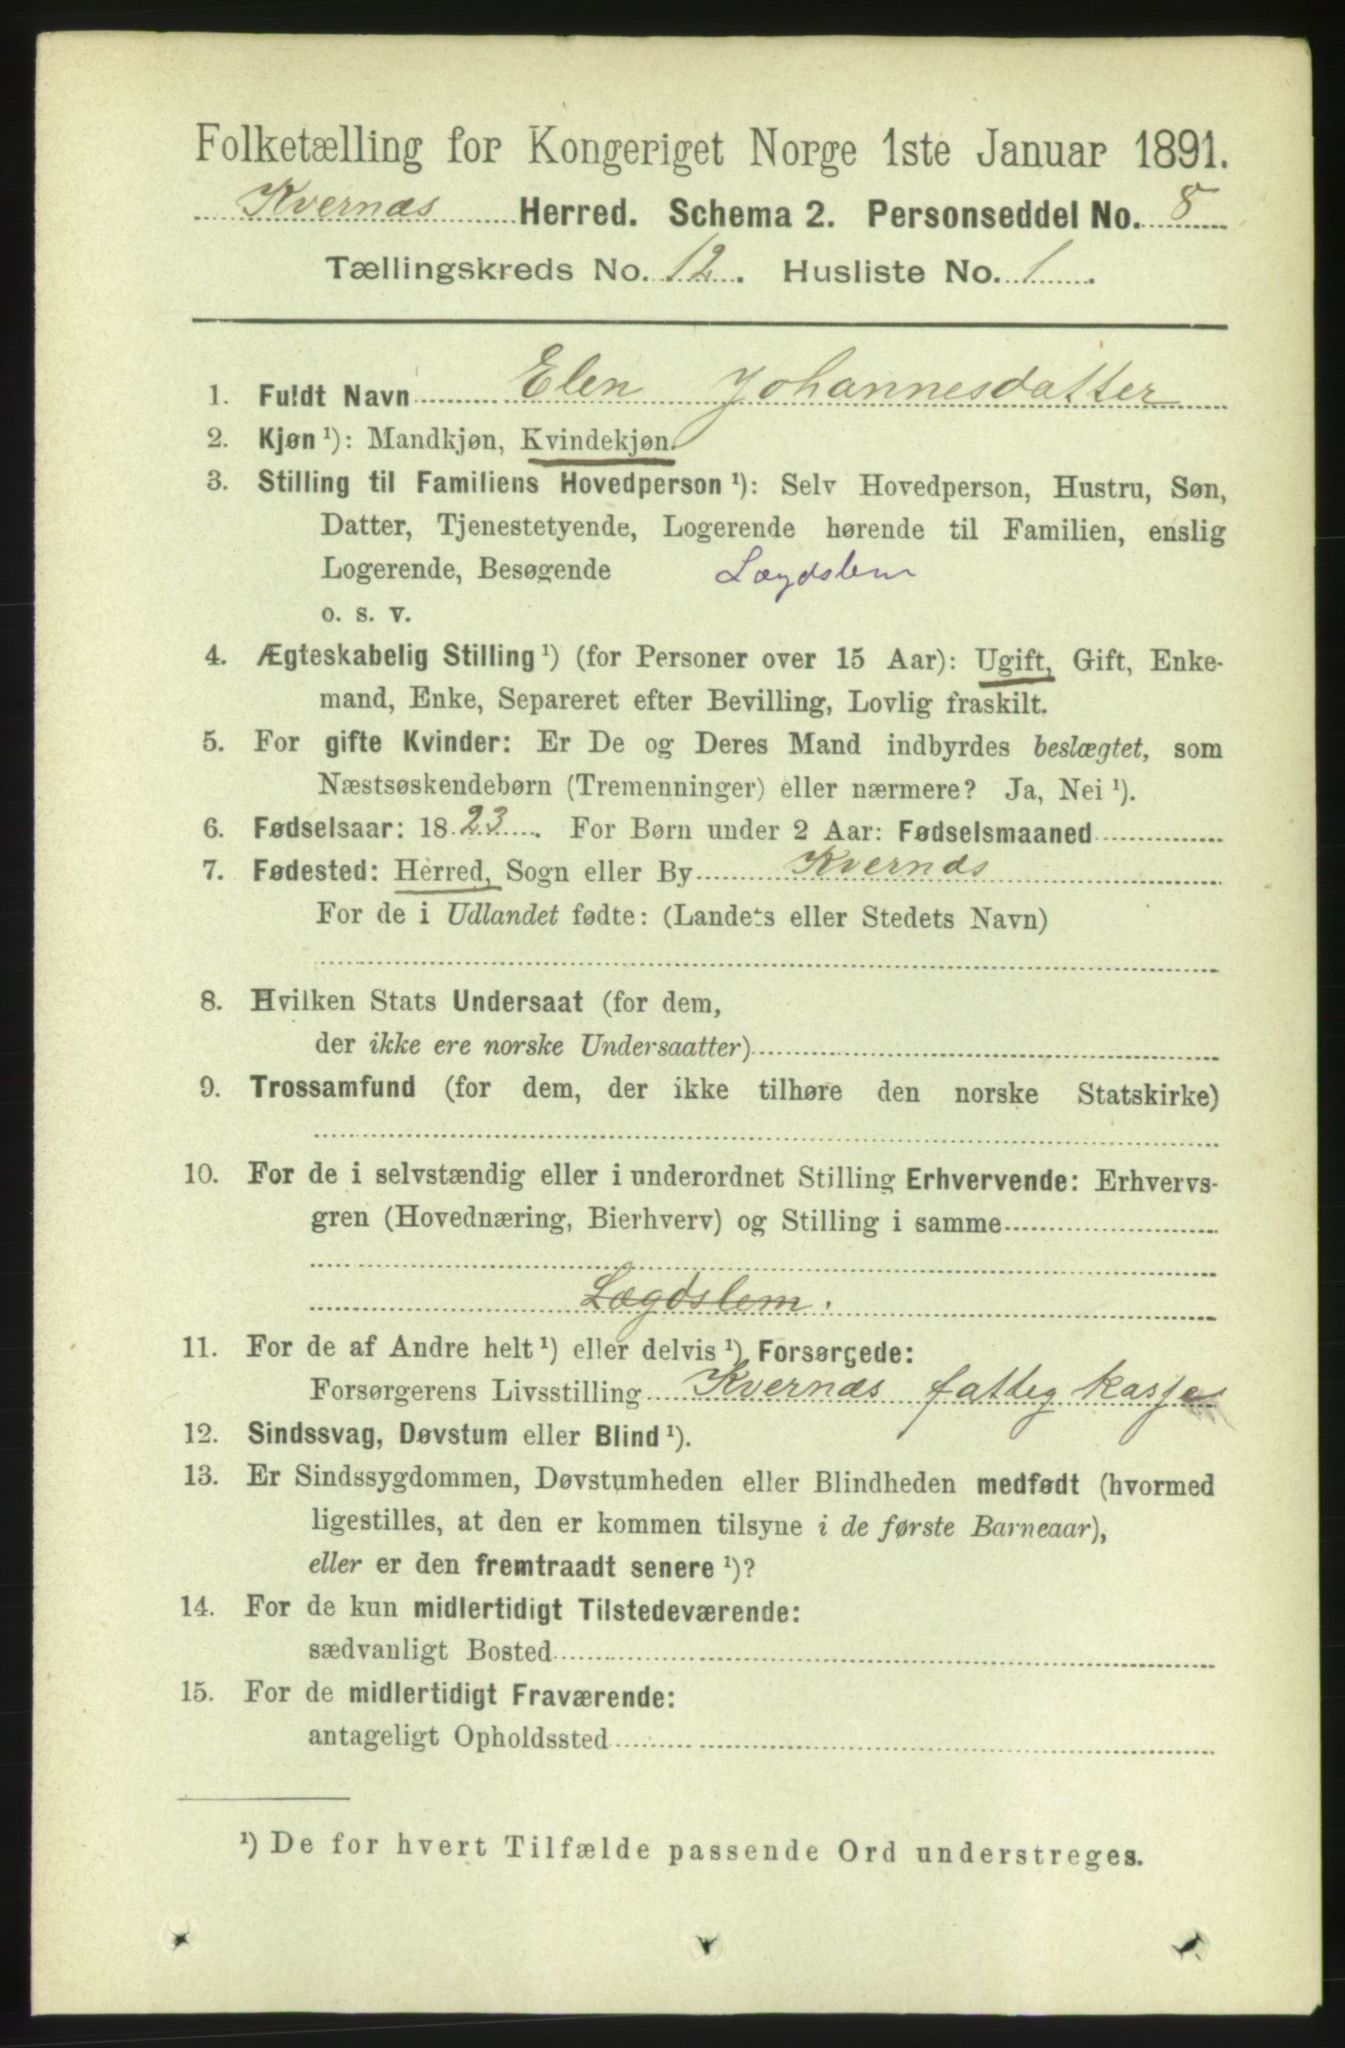 Folketælling for Kongeriget Norge 1ste Januar 1891.
Kvernæs Herred. Schema 2. Personseddel No. 8
Tællingskreds No. 12. Husliste No. 1.
1. Fuldt Navn Elen Johannesdatter
2. Kjøn ¹): Mandkjøn, Kvindekjøn.
3. Stilling til Familiens Hovedperson ¹): Selv Hovedperson, Hustru, Søn,
Datter, Tjenestetyende, Logerende hørende til Familien, enslig
Logerende, Besøgende Lægdslem
o. s. v.
4. Ægteskabelig Stilling ¹) (for Personer over 15 Aar): Ugift, Gift, Enke-
mand, Enke, Separeret efter Bevilling, Lovlig fraskilt.
5. For gifte Kvinder: Er De og Deres Mand indbyrdes beslægtet, som
Næstsøskendebørn (Tremenninger) eller nærmere? Ja, Nei ¹).
6. Fødselsaar: 1823. For Børn under 2 Aar: Fødselsmaaned
7. Fødested: Herred, Sogn eller By Kvernæs
For de i Udlandet fødte: (Landets eller Stedets Navn)
8. Hvilken Stats Undersaat (for dem,
der ikke ere norske Undersaatter)
9. Trossamfund (for dem, der ikke tilhøre den norske Statskirke)
10. For de i selvstændig eller i underordnet Stilling Erhvervende: Erhvervs-
gren (Hovednæring, Bierhverv) og Stilling i samme
Lægdslem.
11. For de af Andre helt ¹) eller delvis ¹) Forsørgede:
Forsørgerens Livsstilling Kvernæs fattigkasse
12. Sindssvag, Døvstum eller Blind ¹).
13. Er Sindssygdommen, Døvstumheden eller Blindheden medfødt (hvormed
ligestilles, at den er kommen tilsyne i de første Barneaar),
eller er den fremtraadt senere ¹)?
14. For de kun midlertidigt Tilstedeværende:
sædvanligt Bosted
15. For de midlertidigt Fraværende:
antageligt Opholdssted
¹) De for hvert Tilfælde passende Ord understreges.